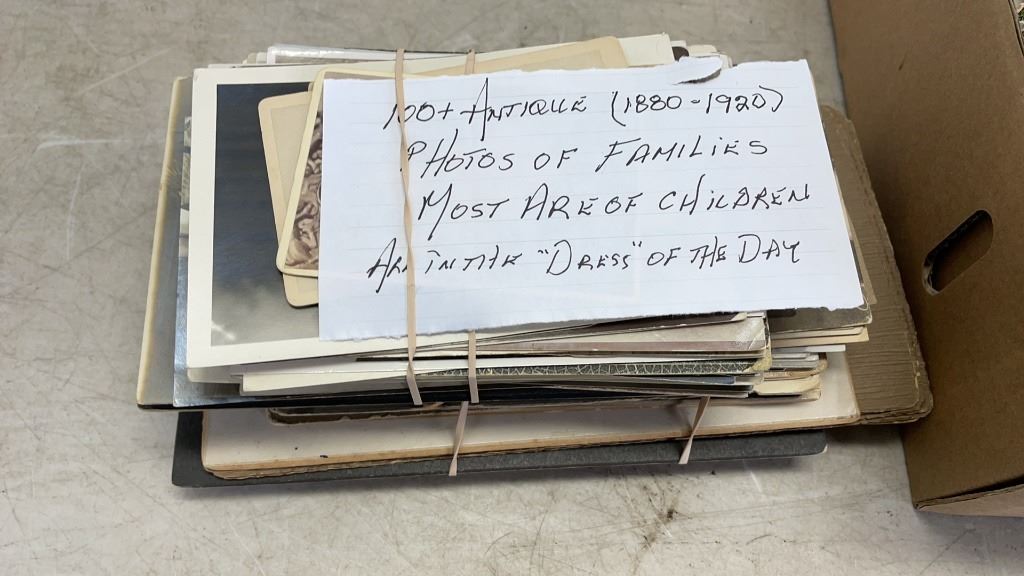 100+ ANTIQUE (1880-1920)
PHOTOS OF FAMILIES
MOST ARE OF CHILDREN
ARE IN THE "DRESS" OF THE DAY